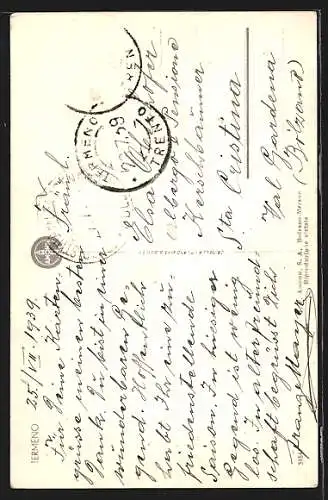 TERMENO 25./VII.1939.
Für Deine Karten-
grüsse meinen besten
Dank. Du bist in einer
wunderbaren Ge-
gend. Hoffentlich
habt Ihr eine zu-
friedenstellende
Saison. In hiesiger
Gegend ist wenig
los. In alter Freund-
schaft begrüsst Dich
Franz Mayer
Fräul.
Elsa
Albergo Pensione
Kirschbäumer
Sta Cristina
Val Gardena
(Bolzano)
TERMENO
TRENTO
Riproduzione vietata